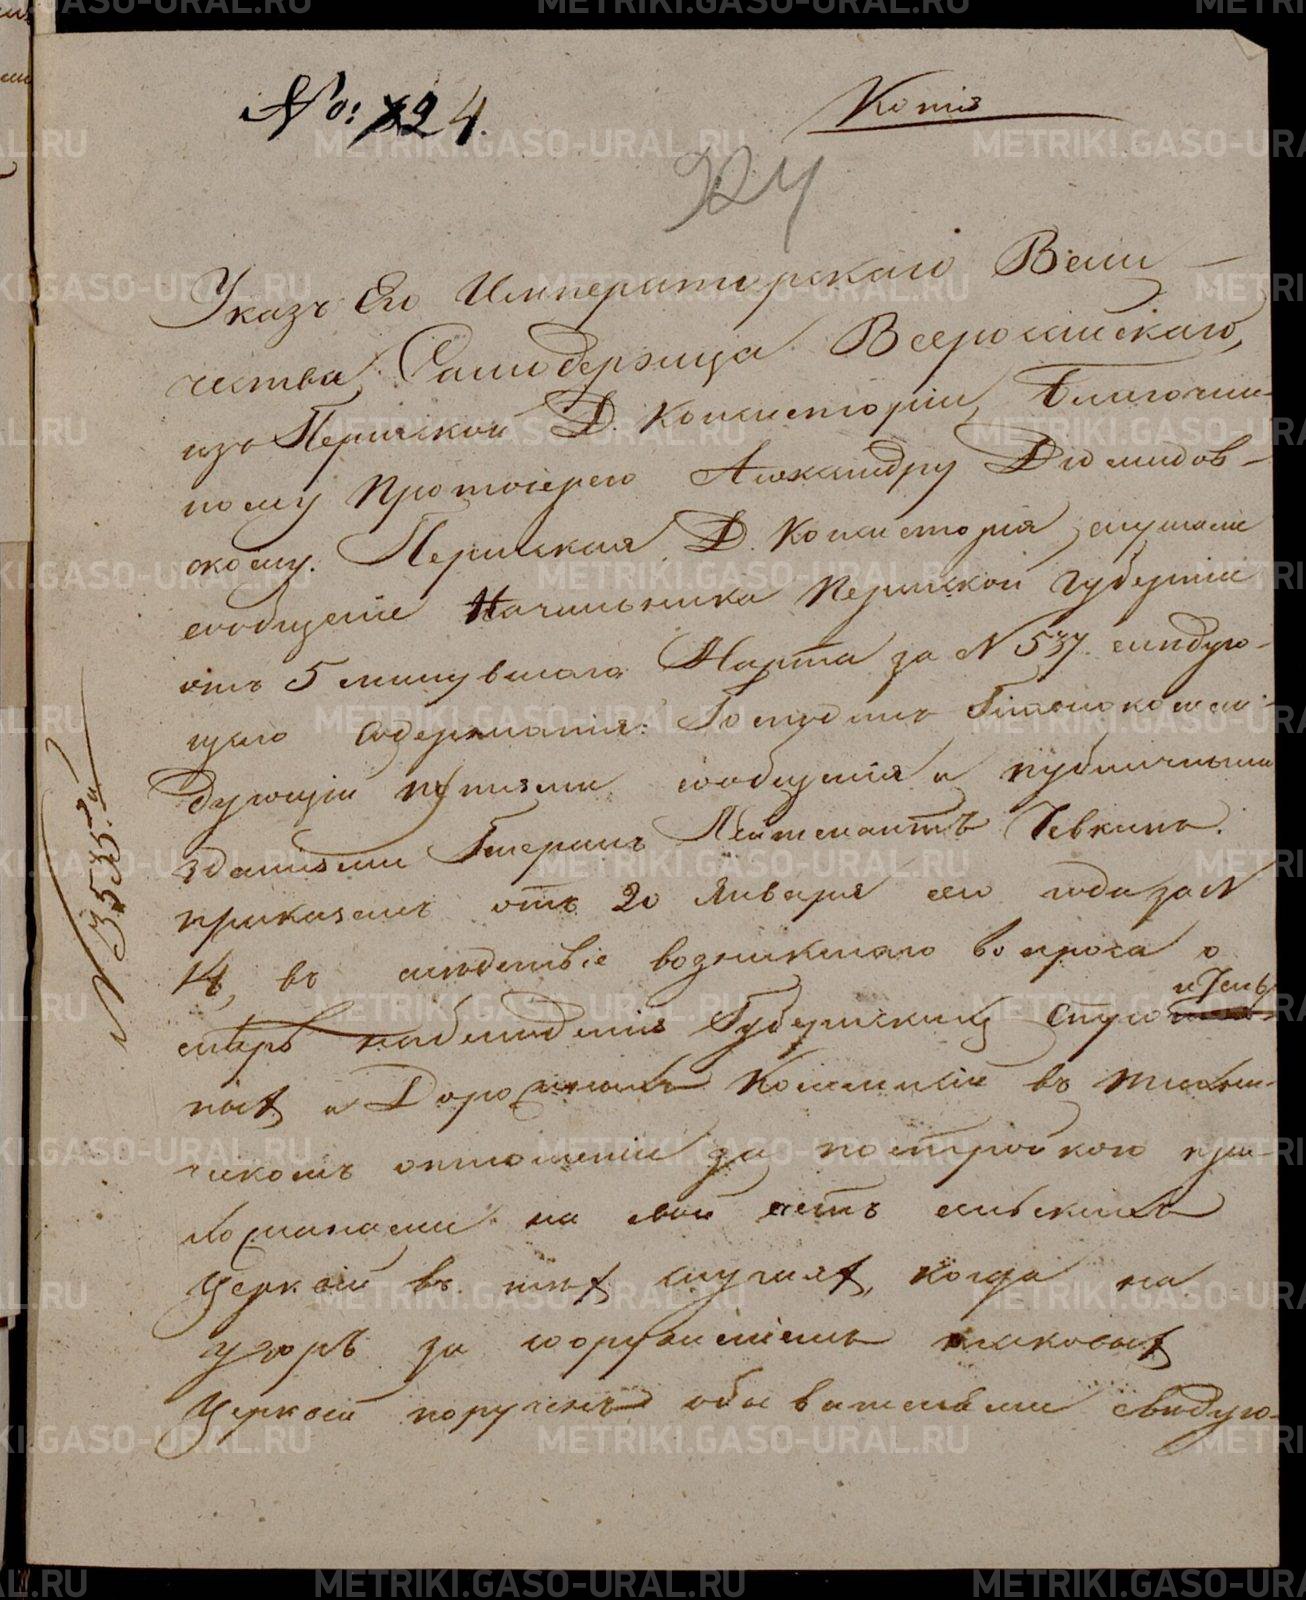 №: 324.
Копія
324
Указъ Его Императорскаго Вели-
чества Самодержца Всероссійскаго,
изъ Пермской Д. Консисторіи, Благочин-
ному Протоіерею Александру Діомидов-
скому. Пермская Д. Консисторія, слушали
сообщеніе Начальника Пермской Губерніи
отъ 5 минувшаго Марта за N 537. слѣдую-
щаго содержанія: Господинъ Главнокоман-
дующій путями сообщенія и публичными
зданіями Генералъ Лейтенантъ Чевкинъ.
приказомъ отъ 20 Января сего года за N
14, въ слѣдствіе возникшаго вопроса о
мѣрѣ наблюденія Губернскихъ Строитель
ныхъ и Дорожныхъ Коммисій въ техни-
ческомъ отношеніи за постройкою при-
хожанами на свой счетъ сельскихъ
Церквей въ тѣхъ случаяхъ, когда на
зоръ за сооруженіемъ таковыхъ
Церквей порученъ обывателями свѣдую-
N 3535.
METRIKI.GASO-URAL.RU